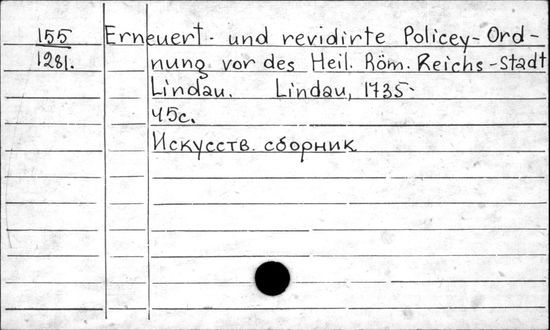 155 Erneuert- und revidirte Policey-Ord-
1281. nung vor des Heil. Röm. Reichs-Stadt
Lindau. Lindau, 1735.
45с.
Искусств. сборник